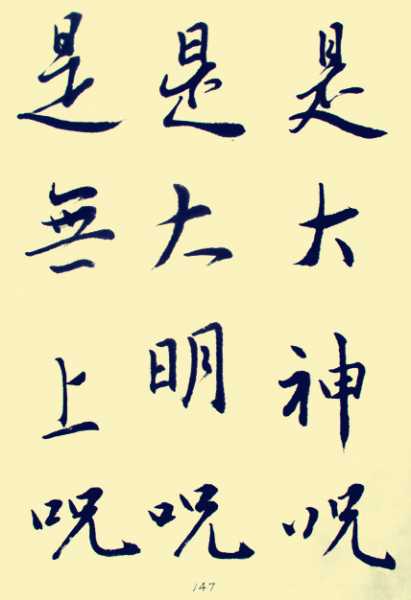 是大神咒
是大明咒
是無上咒
147